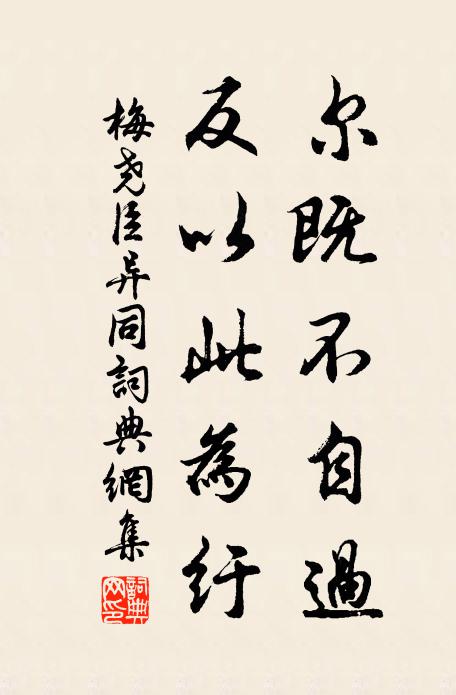 尔既不自過
反以此為紆
梅尧臣异同詞典網集
詞典网印